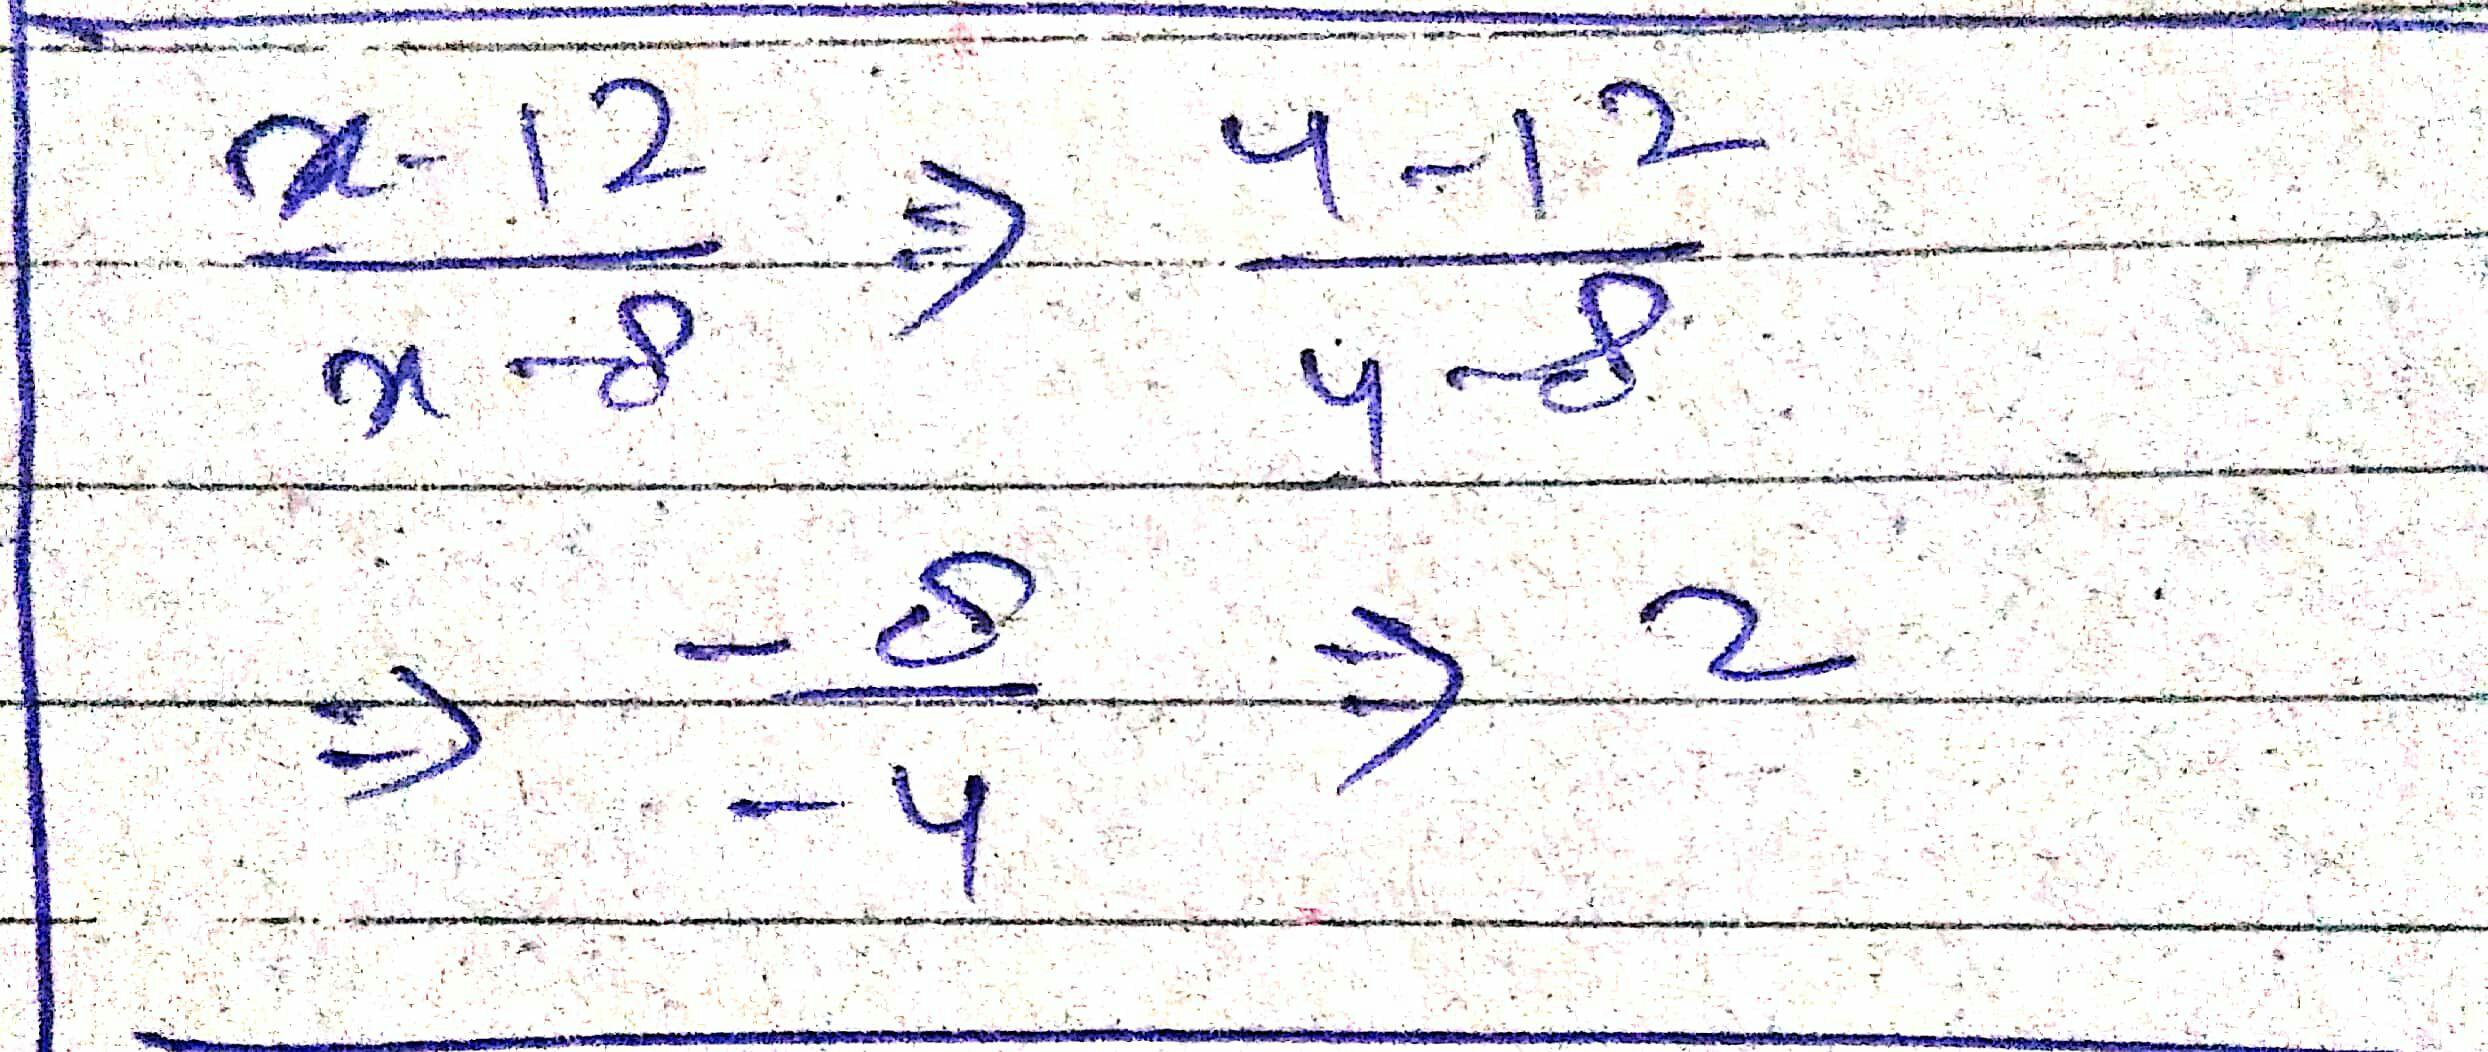 x-12/x-8 ⇒ 4-12/4-8
⇒ -8/-4 ⇒ 2